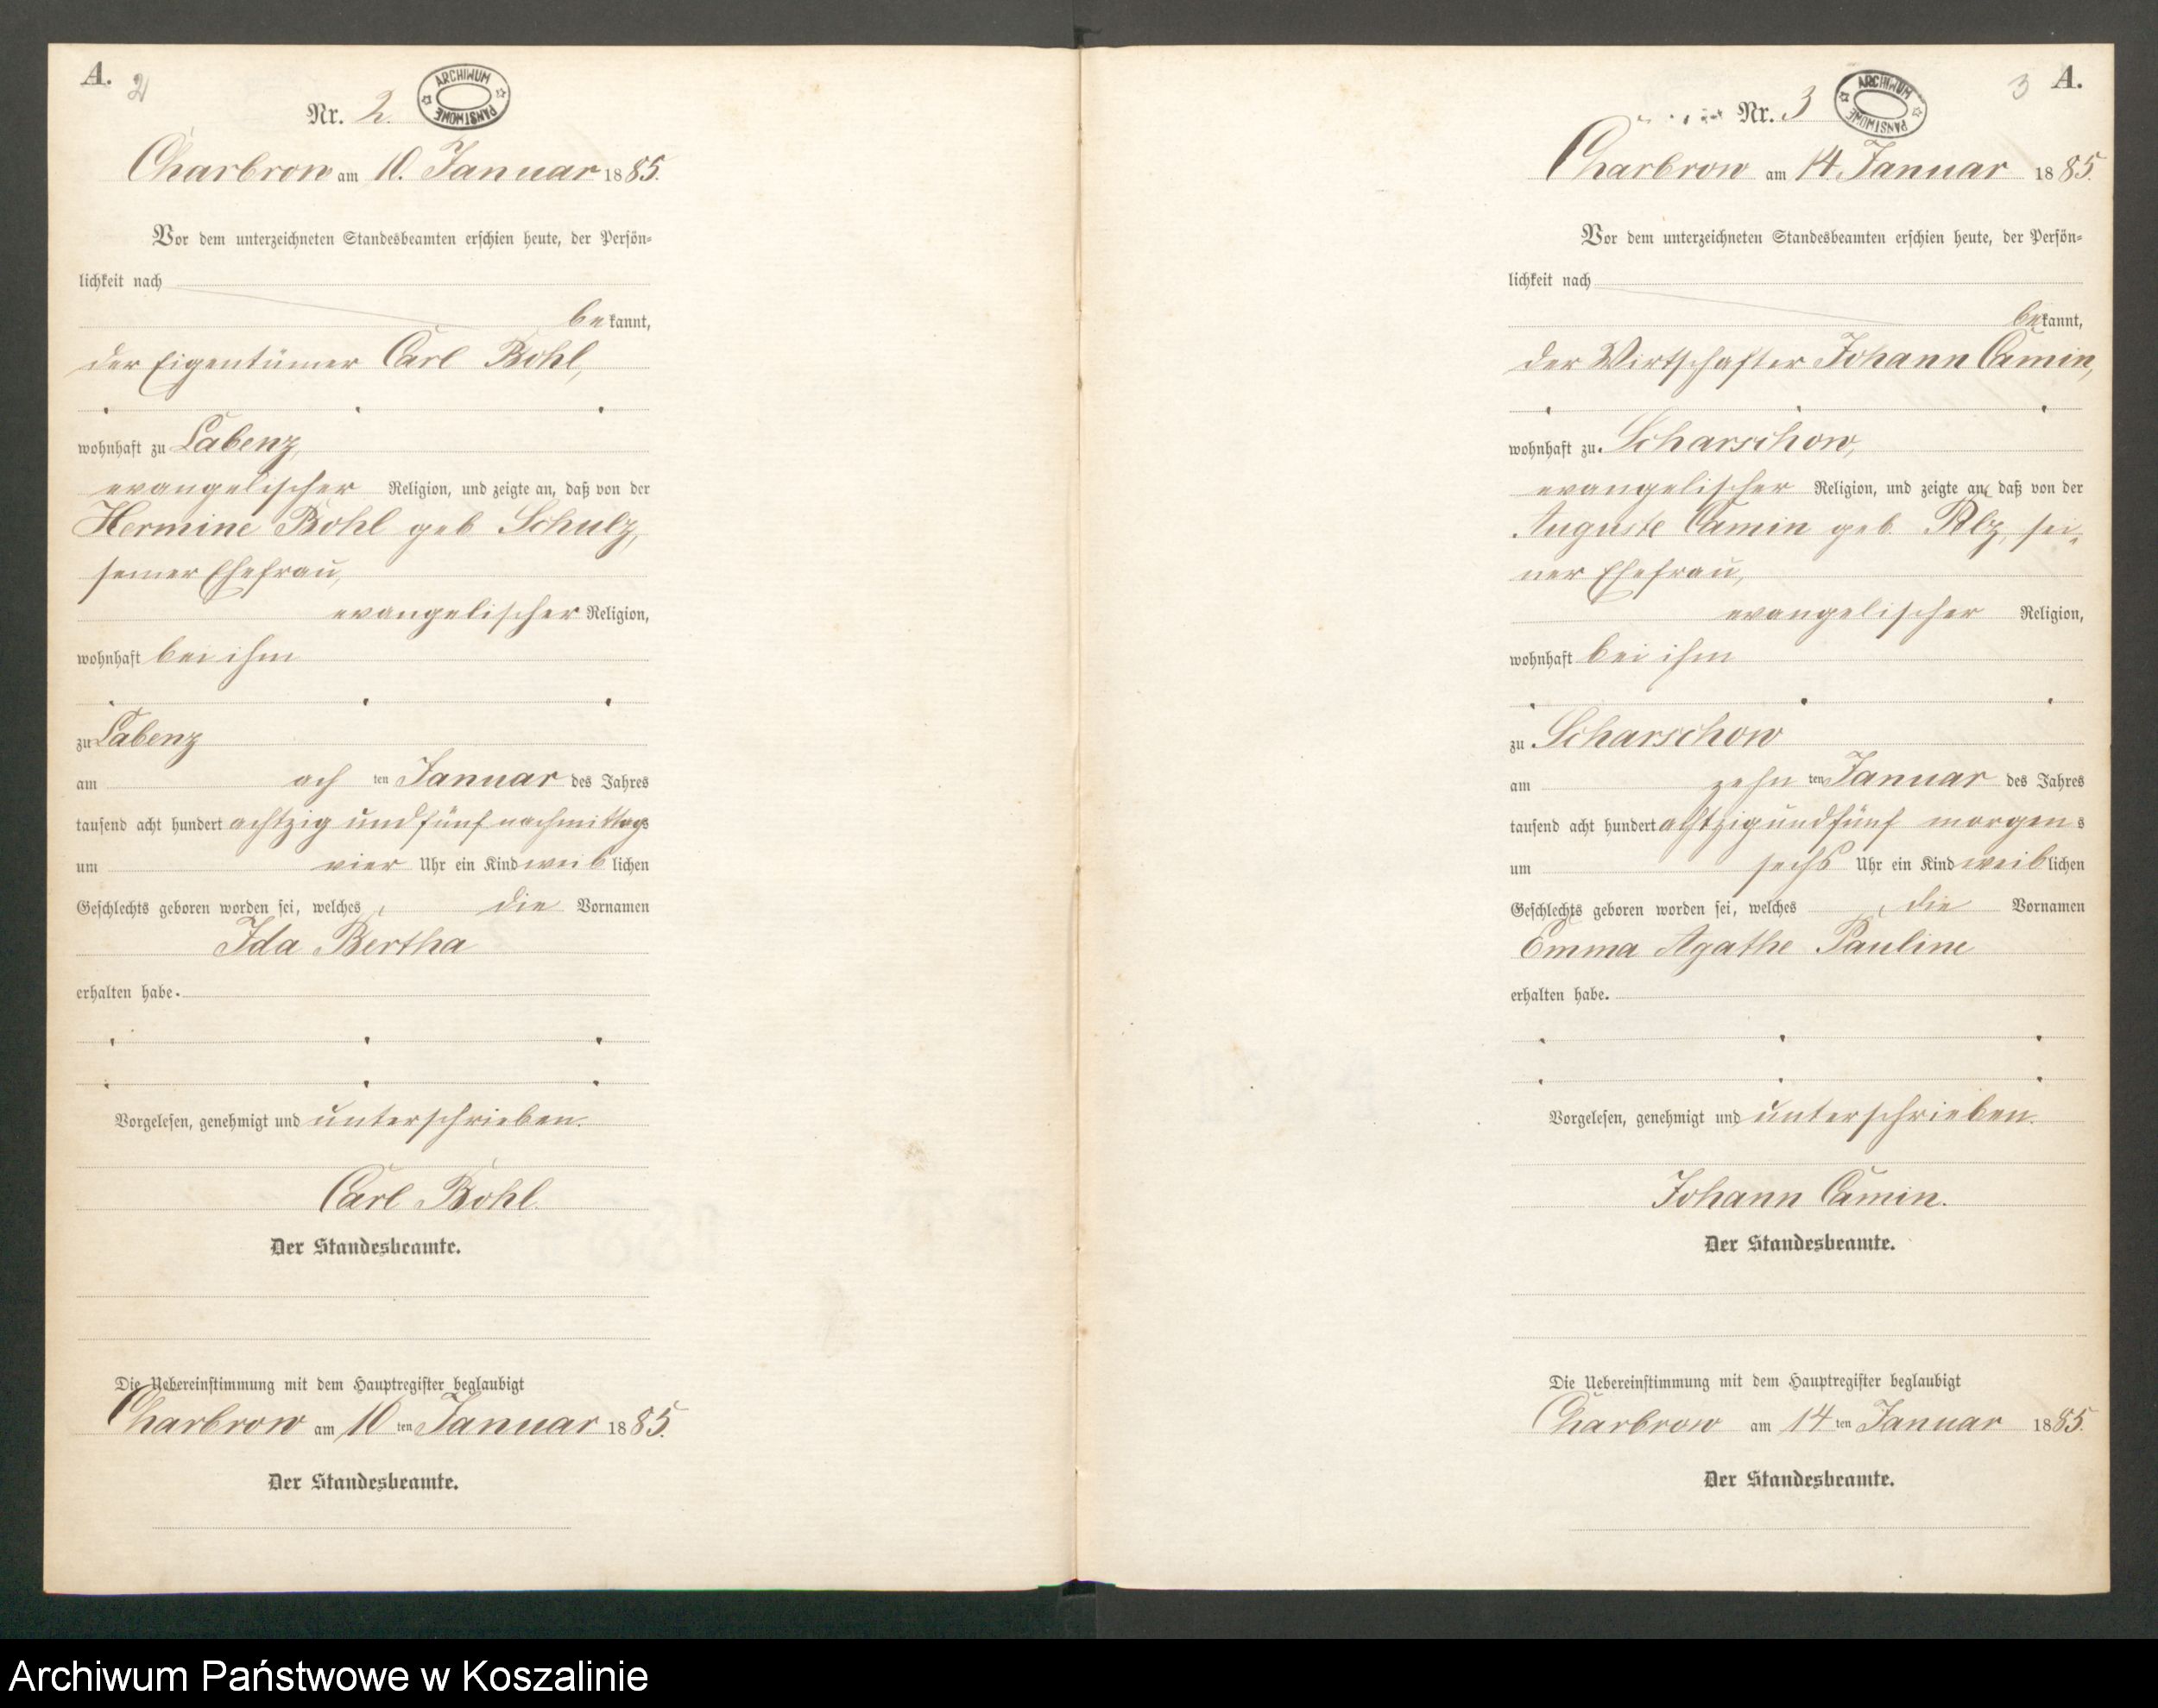 A. 2
ARCHIWUM PAŃSTWOWE
Nr. 2.
Charbrow am 10. Januar 1885.
Vor dem unterzeichneten Standesbeamten erschien heute, der Persön-
lichkeit nach
bekannt,
der Eigentümer Carl Bohl,
wohnhaft zu Labenz,
evangelischer Religion, und zeigte an, daß von der
Hermine Bohl geb Schulz,
seiner Ehefrau,
evangelischer Religion,
wohnhaft bei ihm
zu Labenz
am ach ten Januar des Jahres
tausend acht hundert achtzig und fünf nachmittags
um vier Uhr ein Kind weiblichen
Geschlechts geboren worden sei, welches die Vornamen
Ida Bertha
erhalten habe.
Vorgelesen, genehmigt und unterschrieben.
Carl Bohl.
Der Standesbeamte.
Die Uebereinstimmung mit dem Hauptregister beglaubigt
Charbrow am 10 ten Januar 1885.
Der Standesbeamte.
3 A.
ARCHIWUM PAŃSTWOWE
Nr. 3
Charbrow am 14. Januar 1885.
Vor dem unterzeichneten Standesbeamten erschien heute, der Persön-
lichkeit nach
bekannt,
der Wirtschafter Johann Camin,
wohnhaft zu Scharschow,
evangelischer Religion, und zeigte an, daß von der
Auguste Camin geb. sei-
ner Ehefrau,
evangelischer Religion,
wohnhaft bei ihm
zu Scharschow
am zehn ten Januar des Jahres
tausend acht hundert achtzig und fünf morgens
um sechs Uhr ein Kind weiblichen
Geschlechts geboren worden sei, welches die Vornamen
Emma Agathe Pauline
erhalten habe.
Vorgelesen, genehmigt und unterschrieben.
Johann Camin.
Der Standesbeamte.
Die Uebereinstimmung mit dem Hauptregister beglaubigt
Charbrow am 14 ten Januar 1885.
Der Standesbeamte.
Archiwum Państwowe w Koszalinie